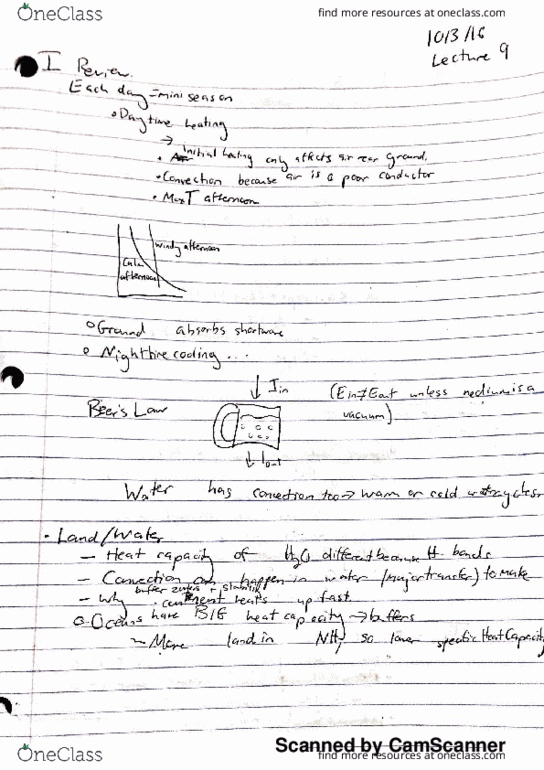 OneClass
find more resources at oneclass.com
10/3/16
Lecture 9
I Review
Each day = mini season
Daytime heating
→ Initial heating only affects air near ground.
Convection because air is a poor conductor
Max T afternoon
Windy afternoon
Calm
afternoon
Ground absorbs shortwave
Nighttime cooling ...
↓ Iin
(Ein≠Eout unless medium is a
vacuum)
Beer's Law
↓ Iout
Water has convection too → warm or cold
- Land/Water
- Heat capacity of H2O different because H-bonds
- Convection can happen in water (major transfer) to make
buffer zones +
- Why continent heats up fast.
Oceans have BIG heat capacity → buffers
- More land in NH, so lower specific Heat Capacity
Scanned by CamScanner
OneClass
find more resources at oneclass.com